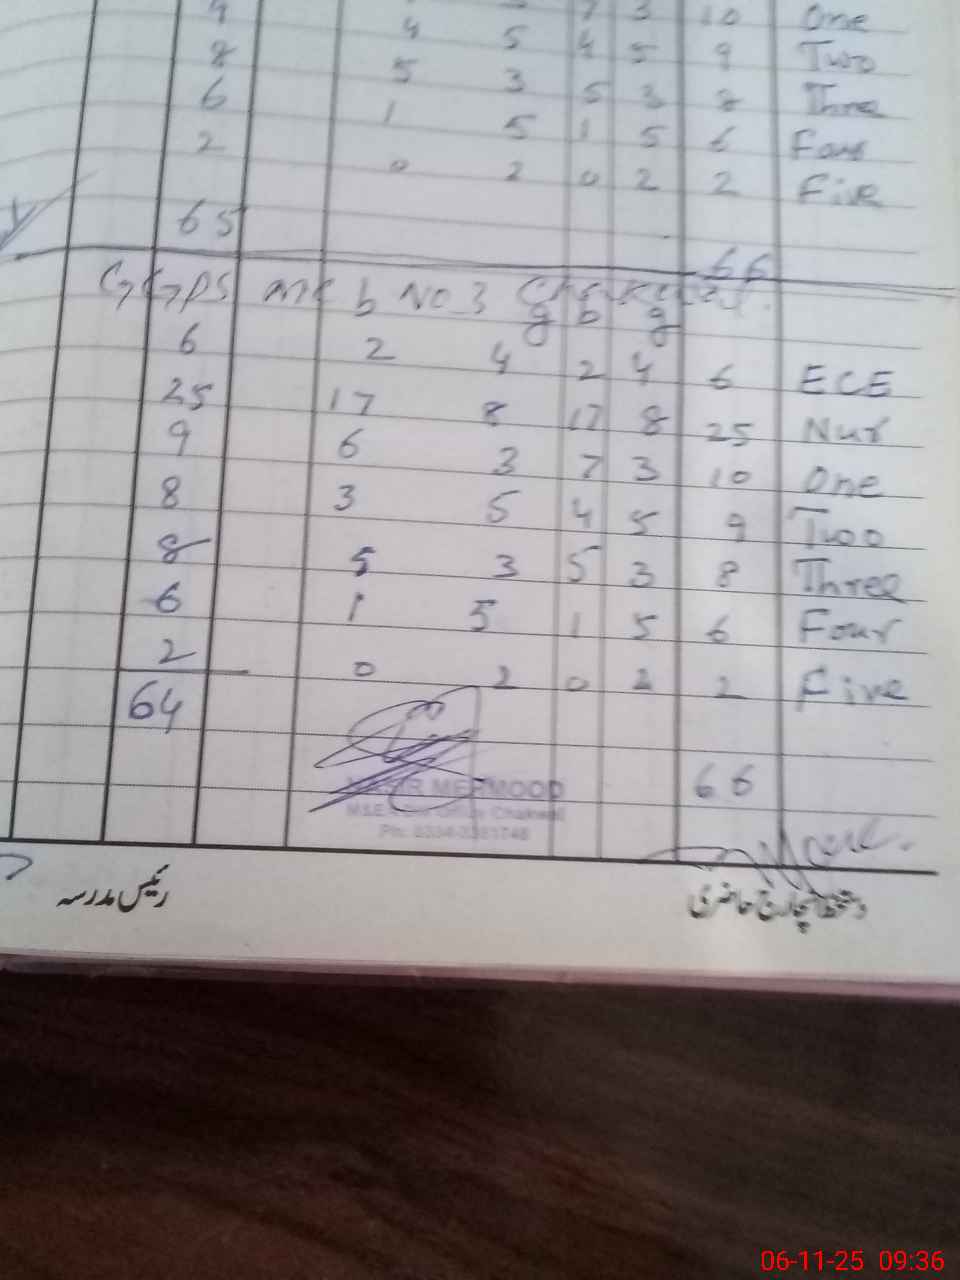 9 4 5 7 3 10 One
8 5 3 4 5 9 Two
6 1 5 5 3 8 Three
2 0 2 1 5 6 Four
0 2 2 Five
65
66
GGPS MC b No 3 g b g
6 2 4 2 4 6 ECE
25 17 8 17 8 25 Nur
9 6 3 7 3 10 One
8 3 5 4 5 9 Twoo
8 5 3 5 3 8 Three
6 1 5 1 5 6 Four
2 0 2 0 2 2 Five
64
66
MEHMOOD
رئیس مدرسہ
دستخط انچارج حاضری
06-11-25 09:36